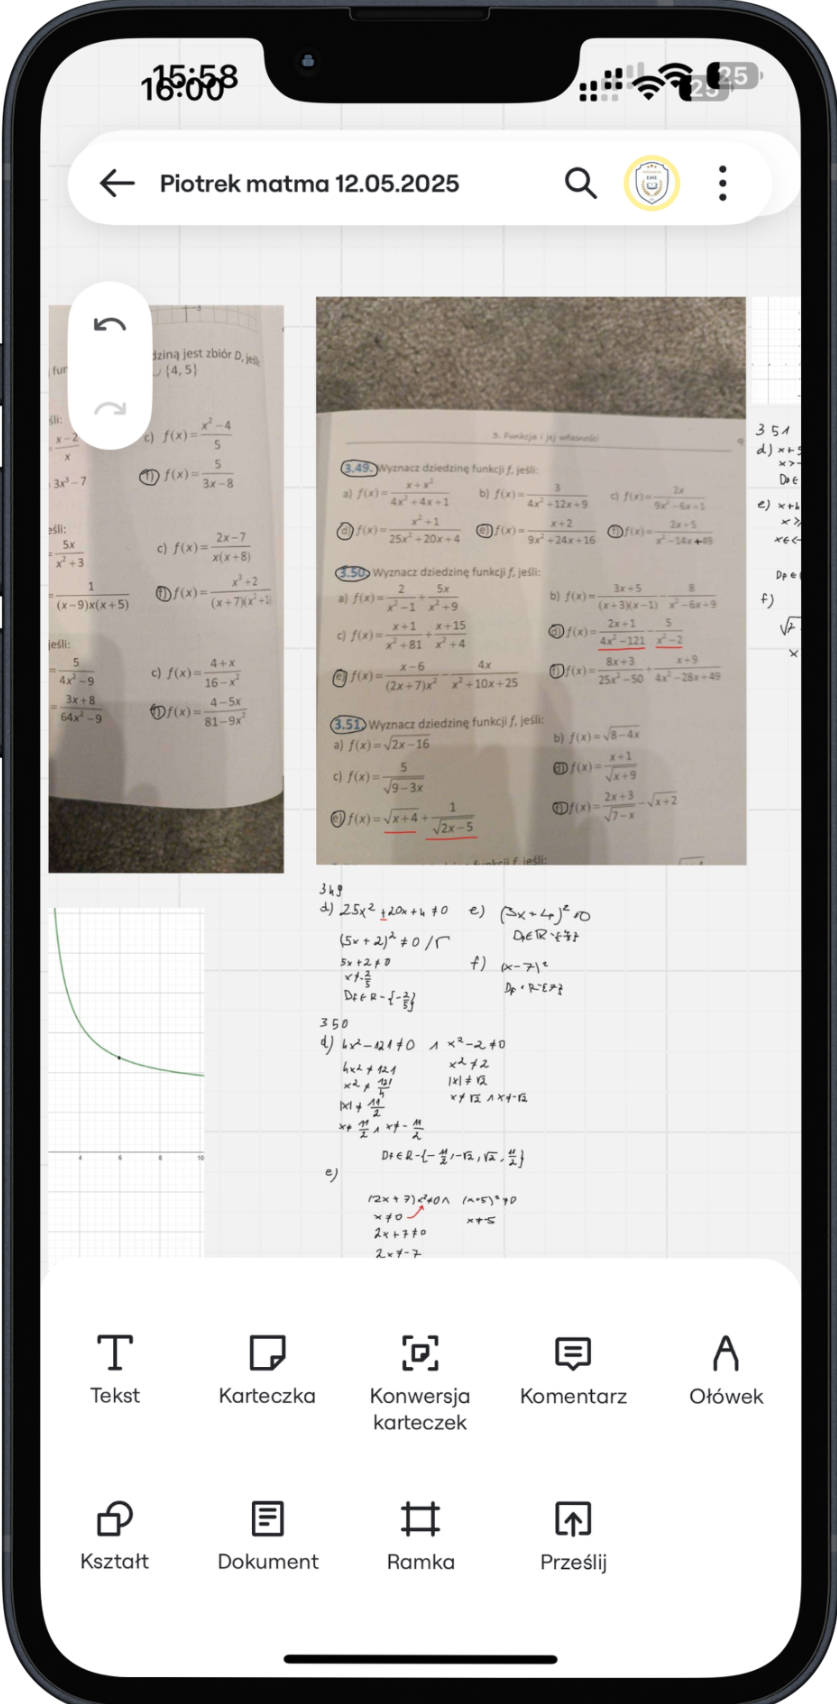 15:58
16:00
25
25
Piotrek matma 12.05.2025
dziną jest zbiór D, jeśli:
∪ {4, 5}
c) f(x) = x²-4/5
f) f(x) = 5/3x-8
3x³-7
eśli:
5x/x²+3
c) f(x) = 2x-7/x(x+8)
1/(x-9)x(x+5)
f) f(x) = x³+2/(x+7)(x²+1)
jeśli:
5/4x²-9
c) f(x) = 4+x/16-x²
3x+8/64x²-9
f) f(x) = 4-5x/81-9x²
3. Funkcja i jej własności
3.49. Wyznacz dziedzinę funkcji f, jeśli:
a) f(x) = x+x²/4x²+4x+1 b) f(x) = 3/4x²+12x+9 c) f(x) = 2x/9x²-6x+1
d) f(x) = x²+1/25x²+20x+4 e) f(x) = x+2/9x²+24x+16 f) f(x) = 2x+5/x²-14x+49
3.50. Wyznacz dziedzinę funkcji f, jeśli:
a) f(x) = 2/x²-1 + 5x/x²+9 b) f(x) = 3x+5/(x+3)(x-1) - 8/x²-6x+9
c) f(x) = x+1/x²+81 + x+15/x²+4 d) f(x) = 2x+1/4x²-121 - 5/x²-2
e) f(x) = x-6/(2x+7)x² - 4x/x²+10x+25 f) f(x) = 8x+3/25x²-50 + x+9/4x²-28x+49
3.51. Wyznacz dziedzinę funkcji f, jeśli:
a) f(x) = √2x-16 b) f(x) = √8-4x
c) f(x) = 5/√9-3x d) f(x) = x+1/√x+9
e) f(x) = √x+4 + 1/√2x-5 f) f(x) = 2x+3/√7-x - √x+2
funkcji f, jeśli:
351
d) x+
x>-
D∈
e) x+4
x≥
x∈<-
D_f∈
f)
x
349
d) 25x²+20x+4≠0 e) (3x+4)²≠0
(5x+2)²≠0 /√
5x+2≠0 f) (x-7)²
x≠-2/5
D_f∈R-{-2/5}
350
d) 4x²-121≠0 ∧ x²-2≠0
4x²≠121 x²≠2
x²≠121/4 |x|≠√2
|x|≠11/2 x≠√2 ∧ x≠-√2
x≠11/2 ∧ x≠-11/2
D_f∈R-{-11/2,-√2,√2,11/2}
e)
(2x+7)x²≠0 ∧ (x+5)²≠0
x≠0 x≠-5
2x+7≠0
2x≠-7
4 6 8 10
Tekst
Karteczka
Konwersja
karteczek
Komentarz
Ołówek
Kształt
Dokument
Ramka
Prześlij